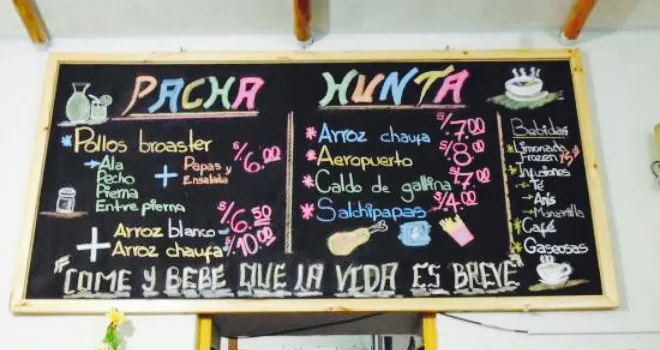 PACHA HUNTA
* Pollos broaster S/6.00
→ Ala
Pecho
Pierna
Entre pierna
+ Papas y
Ensalada
+ Arroz blanco S/6.50
Arroz chaufa S/10.00
* Arroz chaufa S/7.00
* Aeropuerto S/8.00
* Caldo de gallina S/7.00
* Salchipapas S/4.00
Bebidas
* Limonada
Frozen
* Infusiones
→ Té
→ Anís
→ Manzanilla
* Café
* Gaseosas
"COME Y BEBE QUE LA VIDA ES BREVE"